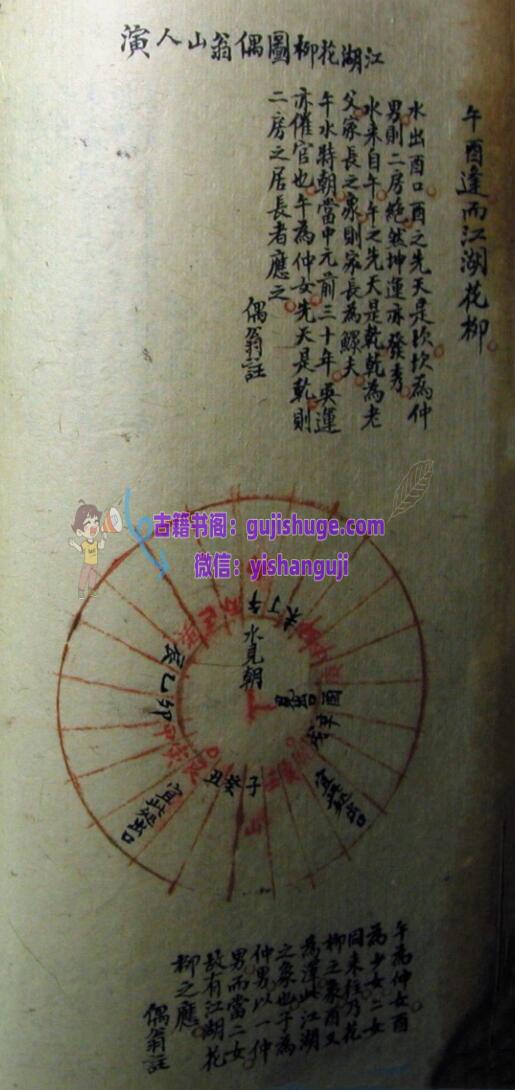 江湖花柳圖偶翁山人演
午酉逢而江湖花柳
水出酉口酉之先天是坎坎為仲
男則二房絕然坤運亦發秀
水来自午午之先天是乾乾為老
父家長之象則家長為鰥夫
午水特朝當中元前三十年巽運
亦催官也午為仲女先天是乾則
二房之居長者應之
偶翁註
古籍书阁：gujishuge.com
微信：yishanguji
午
丁
未
水見朝
酉
辛
辰
乙
卯
丑癸子
山
宜此処出口
午為仲女酉
為少女二女
同来往乃花
柳之象酉又
為澤此江湖
之象也子為
仲男以一仲
男而當二女
故有江湖花
柳之應
偶翁註